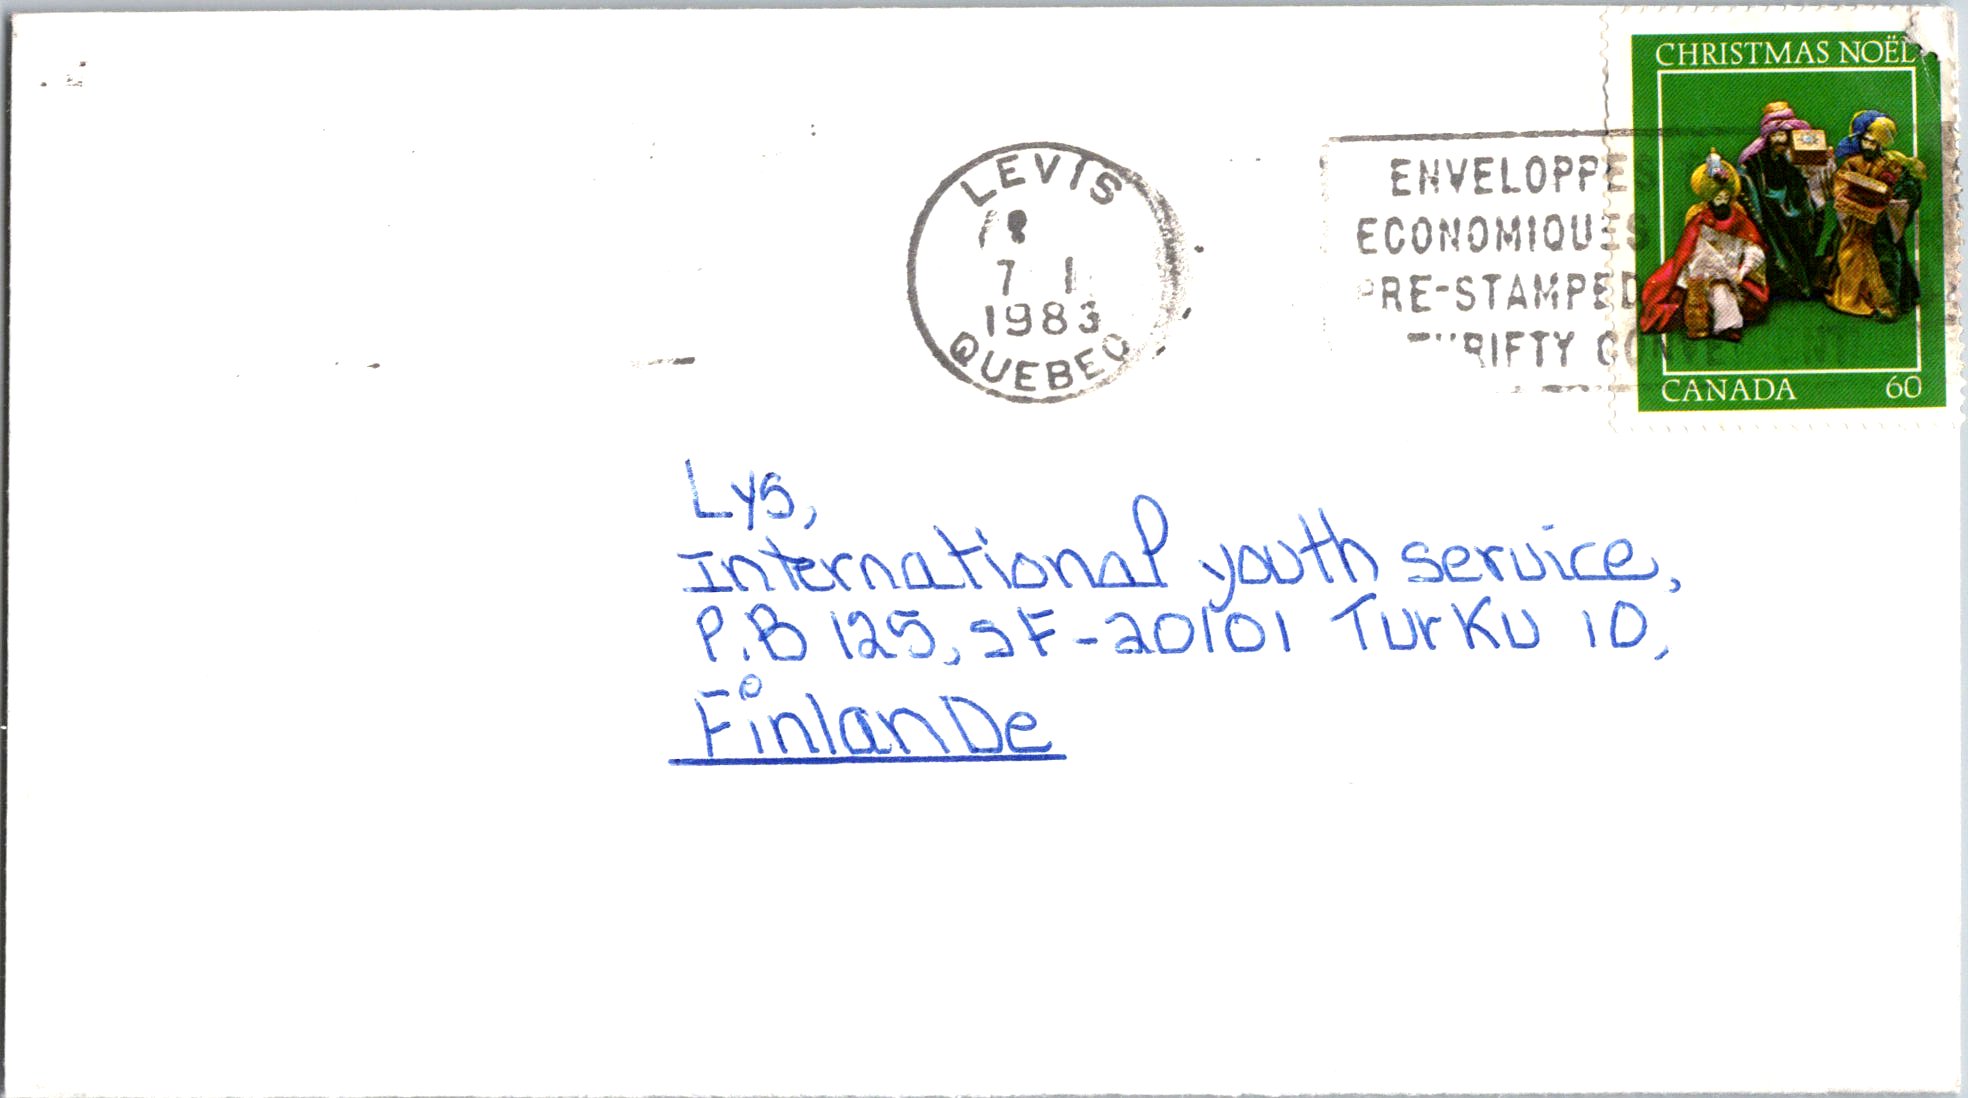 CHRISTMAS NOËL
LEVIS
7 1
1983
QUEBEC
ENVELOPPES
ECONOMIQUES
PRE-STAMPED
CANADA 60
Lys,
International youth service,
P.B 125, SF-20101 Turku 10,
FinlanDe